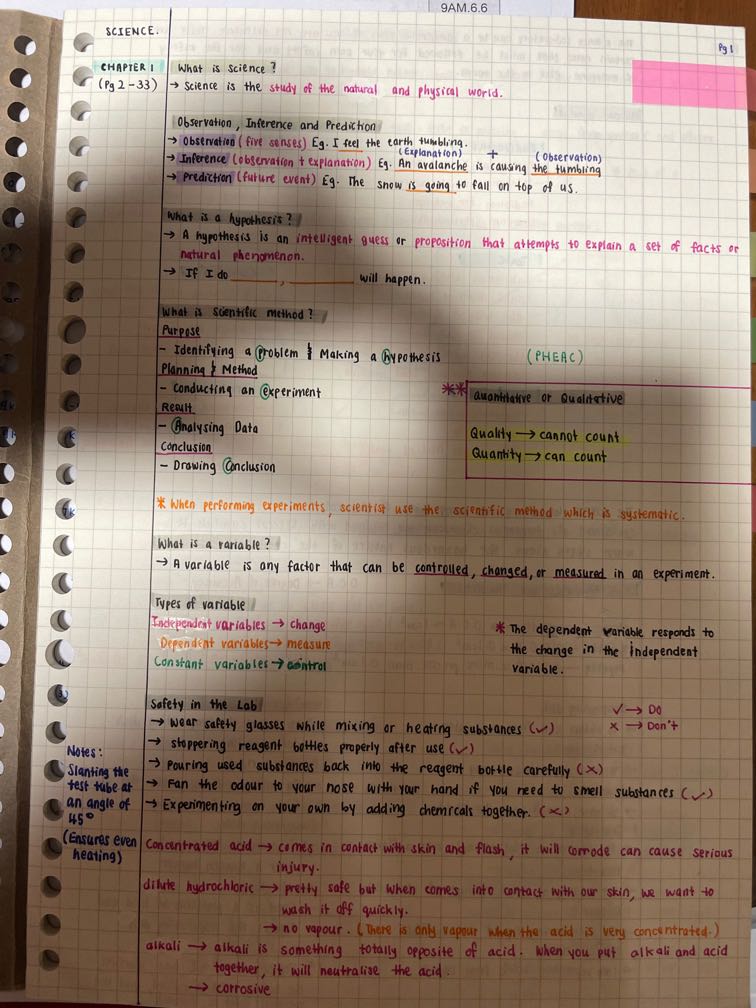 9AM.6.6
SCIENCE.
Pg 1
CHAPTER 1
(Pg 2-33)
What is Science?
→ Science is the study of the natural and physical world.
Observation, Inference and Prediction
→ Observation (five senses) Eg. I feel the earth tumbling.
(Explanation) + (Observation)
→ Inference (observation + explanation) Eg. An avalanche is causing the tumbling
→ Prediction (future event) Eg. The snow is going to fall on top of us.
What is a hypothesis?
→ A hypothesis is an intelligent guess or proposition that attempts to explain a set of facts or
natural phenomenon.
→ If I do ________, ________ will happen.
What is Scientific method?
Purpose
- Identifying a Problem & Making a hypothesis
(PHEAC)
Planning & Method
- Conducting an experiment
Result
- Analysing Data
Conclusion
- Drawing Conclusion
** Quantitative or Qualitative
Quality → cannot count
Quantity → can count
* When performing experiments, scientist use the scientific method which is systematic.
What is a variable?
→ A variable is any factor that can be controlled, changed, or measured in an experiment.
Types of variable
Independent variables → change
Dependent variables → measure
Constant variables → control
* The dependent variable responds to
the change in the independent
variable.
Safety in the Lab
✓ → Do
× → Don't
→ Wear safety glasses while mixing or heating substances (✓)
→ stoppering reagent bottles properly after use (✓)
→ Pouring used substances back into the reagent bottle carefully (×)
→ Fan the odour to your nose with your hand if you need to smell substances (✓)
→ Experimenting on your own by adding chemicals together. (×)
Notes:
Slanting the
test tube at
an angle of
45°
(Ensures even
heating)
Concentrated acid → comes in contact with skin and flash, it will corrode can cause serious
injury.
dilute hydrochloric → pretty safe but when comes into contact with our skin, we want to
wash it off quickly.
→ no vapour. (There is only vapour when the acid is very concentrated.)
alkali → alkali is something totally opposite of acid. When you put alkali and acid
together, it will neutralise the acid.
→ corrosive